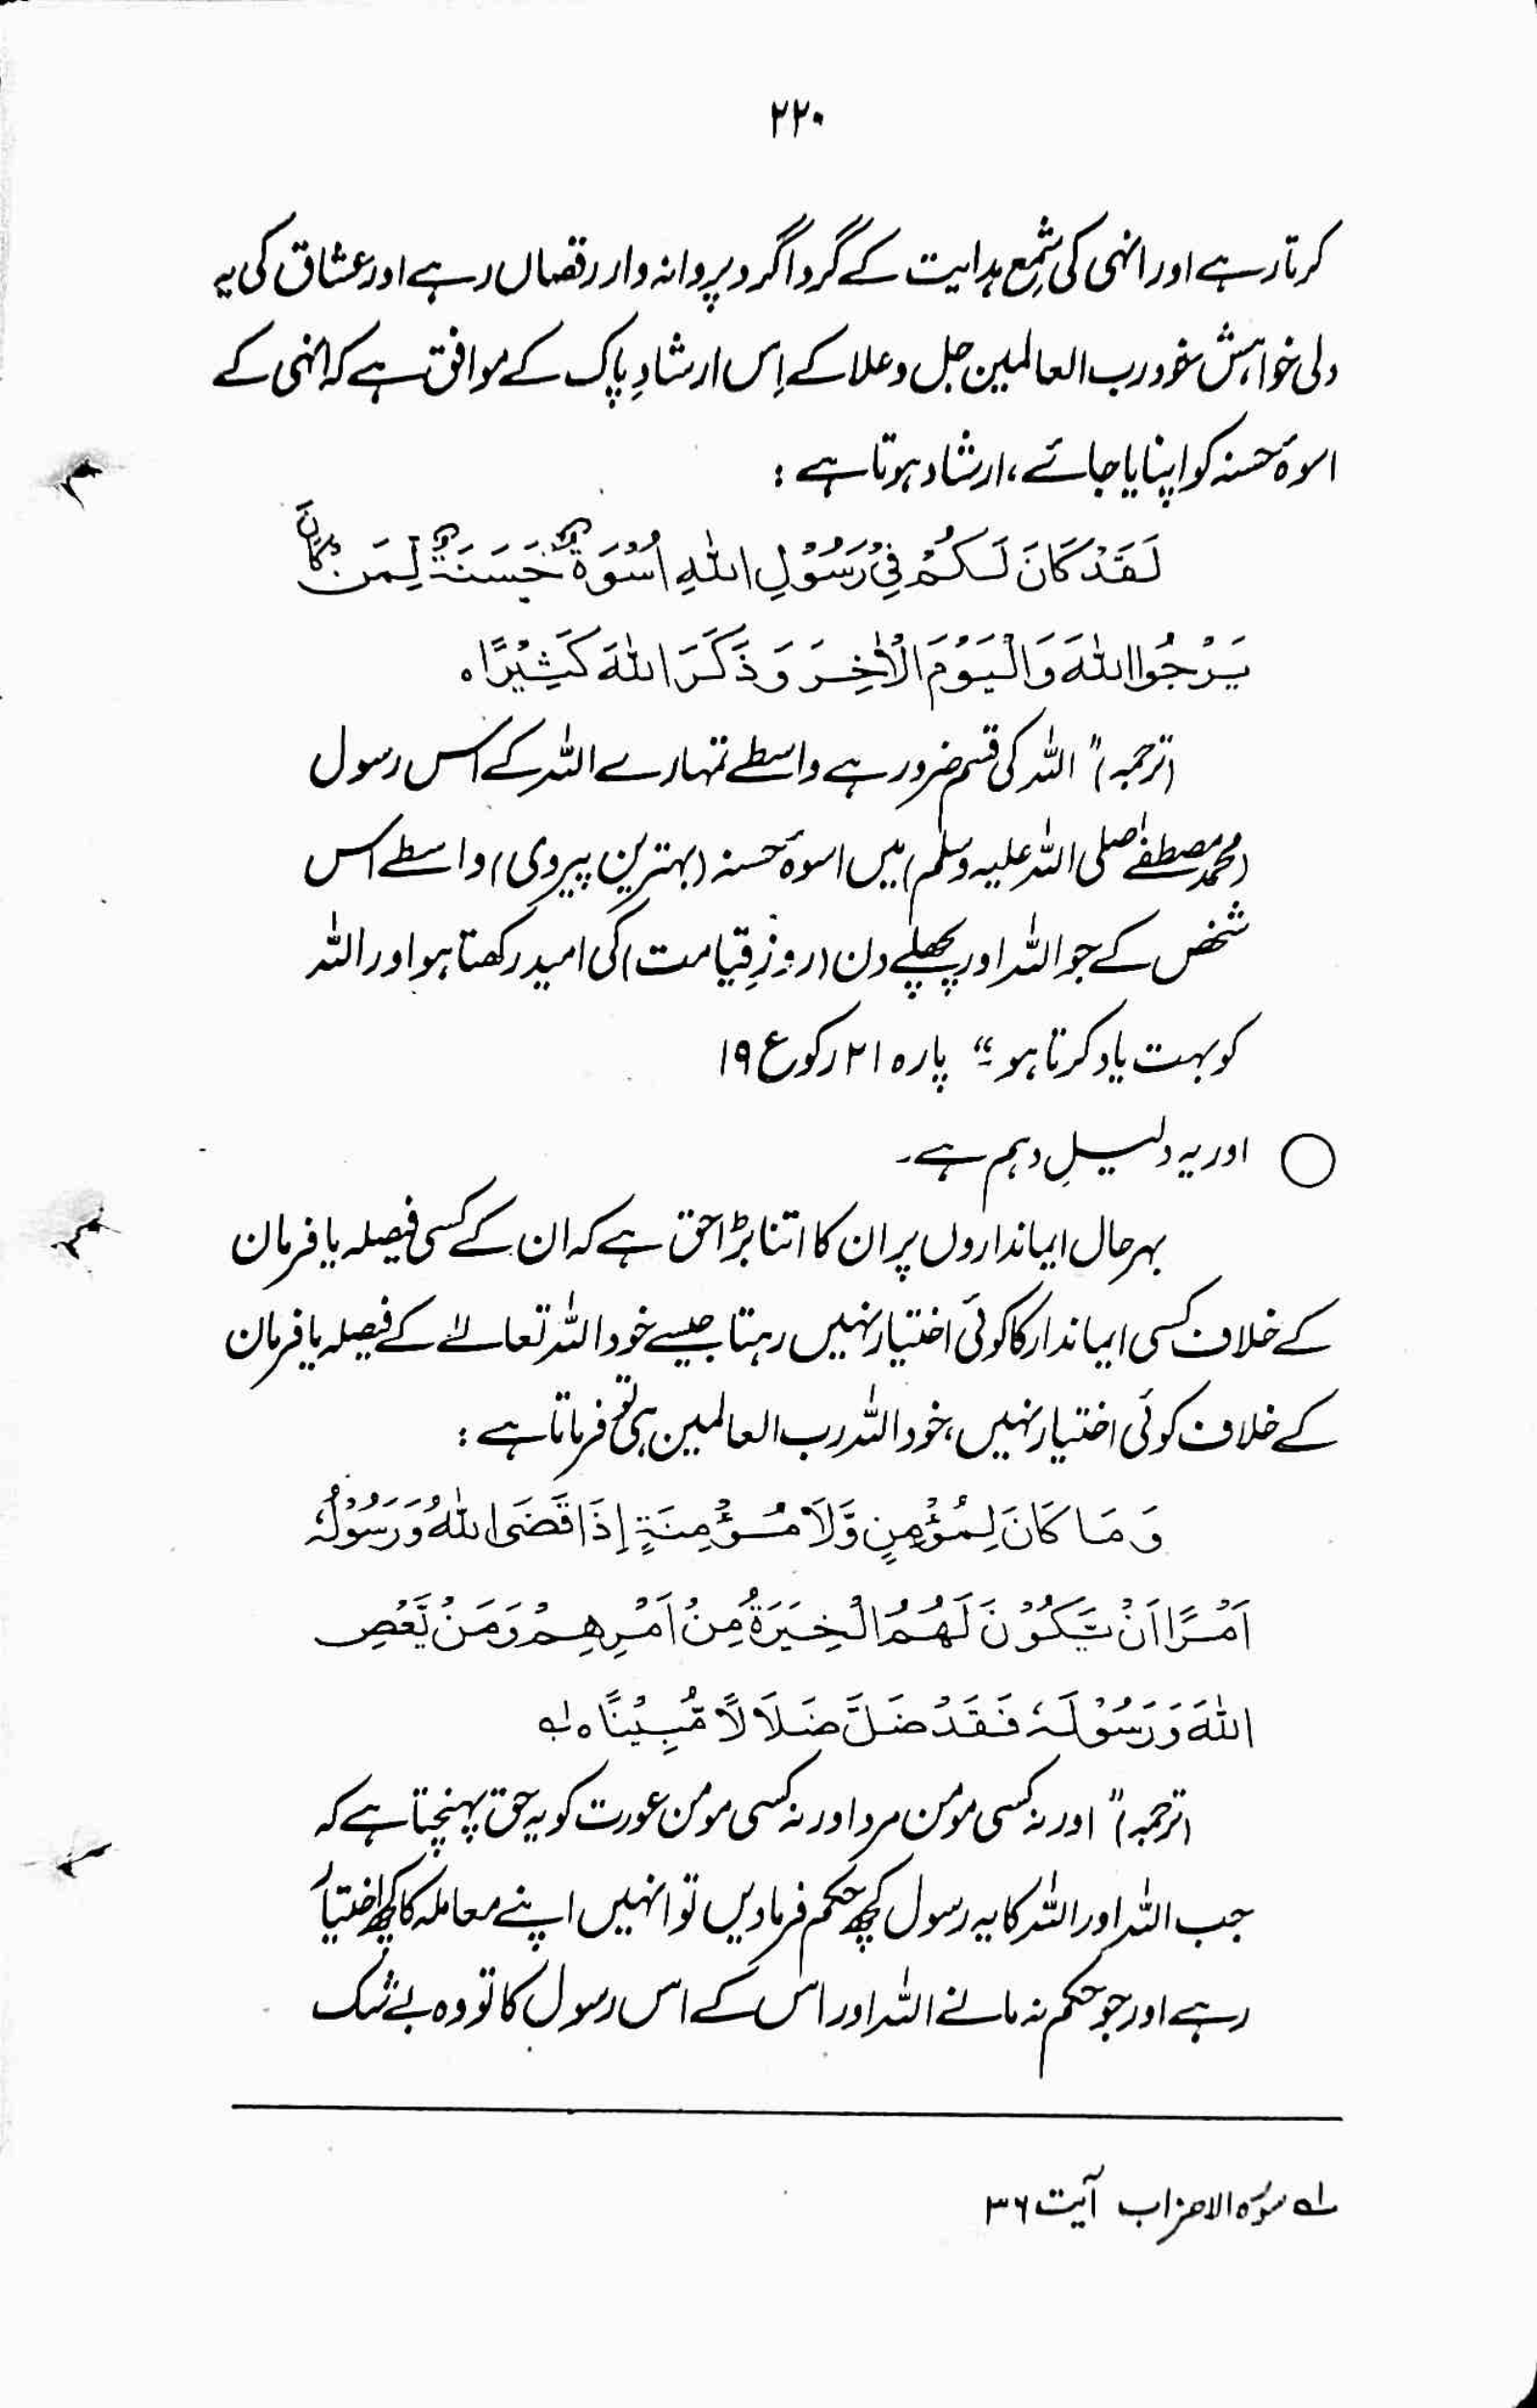 ۲۲۰
کرتا رہے اور انہی کی شمعِ ہدایت کے گرداگرد پروانہ وار رقصاں رہے اور عشاق کی یہ
دلی خواہش خود رب العالمین جل وعلا کے اِس ارشادِ پاک کے موافق ہے کہ انہی کے
اسوۂ حسنہ کو اپنایا جائے، ارشاد ہوتا ہے :
لَقَدْ كَانَ لَكُمْ فِيْ رَسُوْلِ اللهِ اُسْوَةٌ حَسَنَةٌ لِّمَنْ كَانَ
يَرْجُوا اللهَ وَالْيَوْمَ الْاٰخِرَ وَذَكَرَ اللهَ كَثِيْرًا ہ
(ترجمہ) "اللہ کی قسم ضرور ہے واسطے تمہارے اللہ کے اس رسول
(محمد مصطفےٰ صلی اللہ علیہ وسلم) میں اسوۂ حسنہ (بہترین پیروی) واسطے اس
شخص کے جو اللہ اور پچھلے دن (روزِ قیامت) کی امید رکھتا ہو اور اللہ
کو بہت یاد کرتا ہو۔" پارہ ۲۱ رکوع ۱۹
○ اور یہ دلیلِ دہم ہے۔
بہرحال ایمانداروں پر ان کا اتنا بڑا حق ہے کہ ان کے کسی فیصلہ یا فرمان
کے خلاف کسی ایماندار کا کوئی اختیار نہیں رہتا جیسے خود اللہ تعالےٰ کے فیصلہ یا فرمان
کے خلاف کوئی اختیار نہیں، خود اللہ رب العالمین ہی تو فرماتا ہے :
وَمَا كَانَ لِمُؤْمِنٍ وَّلَا مُؤْمِنَةٍ اِذَا قَضَى اللهُ وَرَسُوْلُهٗ
اَمْرًا اَنْ يَّكُوْنَ لَهُمُ الْخِيَرَةُ مِنْ اَمْرِهِمْ وَمَنْ يَّعْصِ
اللهَ وَرَسُوْلَهٗ فَقَدْ ضَلَّ ضَلَالًا مُّبِيْنًا ہ ۱ے
(ترجمہ) "اور نہ کسی مومن مرد اور نہ کسی مومن عورت کو یہ حق پہنچتا ہے کہ
جب اللہ اور اللہ کا یہ رسول کچھ حکم فرمادیں تو انہیں اپنے معاملہ کا کچھ اختیار
رہے اور جو حکم نہ مانے اللہ اور اس کے اس رسول کا تو وہ بے شک
۱ے سورۂ الاحزاب آیت ۳۶